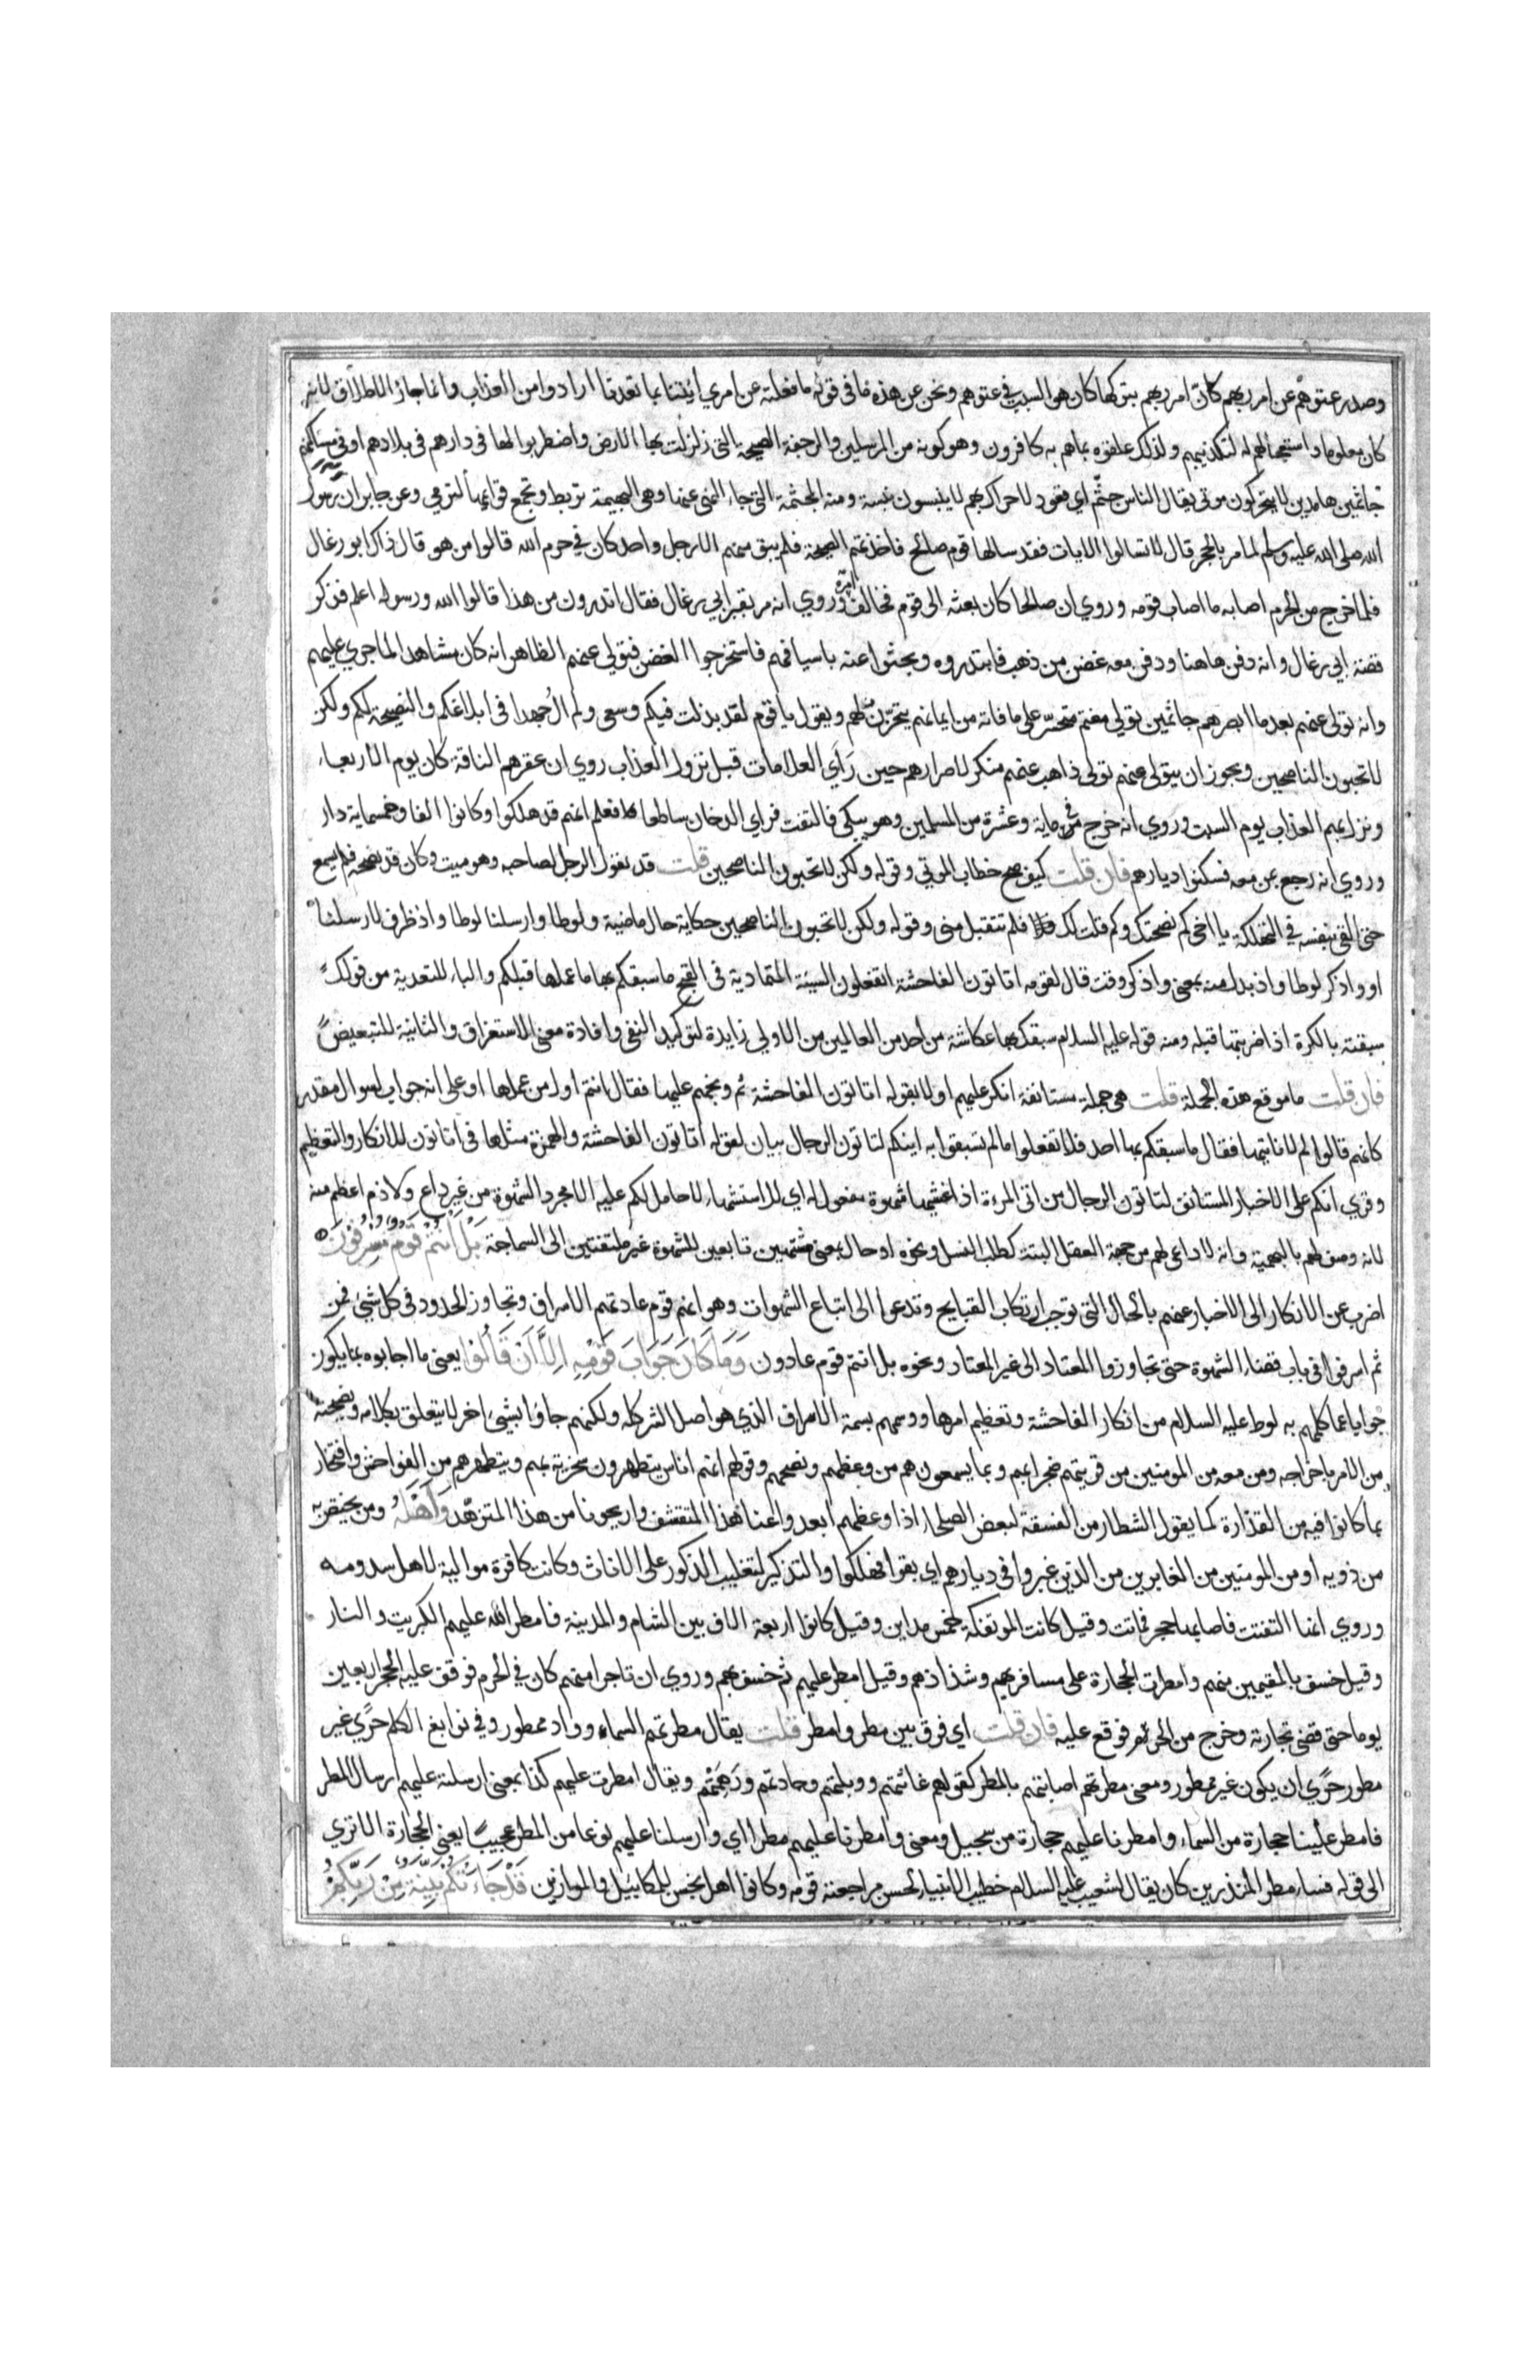 وصدر عتوهم عن امر ربهم كان امر ربهم بتركها كان هو السبب في عتوهم ونحن عن هذه ما في قوله ما فعلته عن امري ايتنا بما تعدنا ارادوا من العذاب وانما جاز الاطلاق لانه
كان معلوما واستعجالهم له لتكذيبهم ولذلك علقوه بما هم به كافرون وهو كونه من المرسلين والرجفة الصيحة التي زلزلت بها الارض واضطربوا لها في دارهم في بلادهم او في مساكنهم
جاثمين هامدين لا يتحركون موتي يقال الناس جثم اي قعود لا حراك بهم لا ينبسون نبسة ومنه المجثمة التي جاء النهي عنها وهي البهيمة تربط وتجمع قوايمها لترمي وعن جابر ان رسول
الله صلى الله عليه وسلم لما مر بالحجر قال لا تسالوا الايات فقد سالها قوم صالح فاخذتهم الصيحة فلم يبق منهم الا رجل واحد كان في حرم الله قالوا من هو قال ذاك ابو رغال
فلما خرج من الحرم اصابه ما اصاب قومه وروي ان صالحا كان بعثه الى قوم فخالف امره وروي انه مر بقبر ابي رغال فقال اتدرون من هذا قالوا الله ورسوله اعلم فذكر
قصة ابي رغال وانه دفن هاهنا ودفن معه غصن من ذهب فابتدروه وبحثوا عنه باسيافهم فاستخرجوا الغصن فتولى عنهم الظاهر انه كان مشاهدا لما جري عليهم
وانه تولى عنهم بعد ما ابصرهم جاثمين تولي مغتم متحسر على ما فاته من ايمانهم يتحزن لهم ويقول يا قوم لقد بذلت فيكم وسعى ولم ال جهدا في ابلاغكم والنصيحة لكم ولكن
لا تحبون الناصحين ويجوز ان يتولى عنهم تولى ذاهب عنهم منكر لاصرارهم حين رأي العلامات قبل نزول العذاب روي ان عقرهم الناقة كان يوم الاربعاء
ونزل بهم العذاب يوم السبت وروي انه خرج في ماية وعشرة من المسلمين وهو يبكي فالتفت فراي الدخان ساطعا فعلم انهم قد هلكوا وكانوا الفا وخمسماية دار
وروي انه رجع بمن معه فسكنوا ديارهم فان قلت كيف صح خطاب الموتي وقوله ولكن لا تحبون الناصحين قلت قد يقول الرجل لصاحبه وهو ميت وكان قد نصحه فلم يسمع
حتى القى بنفسه في التهلكة يا اخي كم نصحتك وكم قلت لك فلم تتقبل مني وقوله ولكن لا تحبون الناصحين حكاية حال ماضية ولوطا وارسلنا لوطا واذ ظرف لارسلنا
او واذكر لوطا واذ بدل منه بمعنى واذكر وقت قال لقومه اتاتون الفاحشة اتفعلون السيئة المتمادية في القبح ما سبقكم بها ما عملها قبلكم والباء للتعدية من قولك
سبقته بالكرة اذا ضربتها قبله ومنه قوله عليه السلام سبقك بها عكاشة من احد من العالمين من الاولي زايدة لتوكيد النفي وافادة معنى الاستغراق والثانية للتبعيض
فان قلت ما موقع هذه الجملة قلت هي جملة مستانفة انكر عليهم اولا بقوله اتاتون الفاحشة ثم وبخهم عليها فقال انتم اول من عملها او على انه جواب لسوال مقدر
كانهم قالوا لم لا ناتيها فقال ما سبقكم بها احد فلا تفعلوا ما لم تسبقوا به اينكم لتاتون الرجال بيان لقوله اتاتون الفاحشة والهمزة مثلها في اتاتون للانكار والتعظيم
وقري انكم على الاخبار المستانف لتاتون الرجال من اتى المرءة اذا غشيها شهوة مفعول له اي للاشتهاء لا حامل لكم عليه الا مجرد الشهوة من غير داع ولا ذم اعظم منه
لانه وصف لهم بالبهيمية وانه لا داعي لهم من جهة العقل البتة كطلب النسل ونحوه او حال بمعنى مشتهين تابعين للشهوة غير ملتفتين الى السماجة بل انتم قوم مسرفون
اضرب عن الانكار الى الاخبار عنهم بالحال التي توجب ارتكاب القبايح وتدعوا الى اتباع الشهوات وهو انهم قوم عادتهم الاسراف وتجاوز الحدود في كل شئ فمن
ثم اسرفوا في باب قضاء الشهوة حتى تجاوزوا المعتاد الى غير المعتاد ونحوه بل انتم قوم عادون وَمَا كَانَ جَوَابَ قَوْمِهِ اِلَّا اَنْ قَالُوا يعنى ما اجابوه بما يكون
جوابا عما كلمهم به لوط عليه السلام من انكار الفاحشة وتعظيم امرها ووسمهم بسمة الاسراف الذي هو اصل الشر كله ولكنهم جاؤا بشئ اخر لا يتعلق بكلامه ونصيحته
من الامر باخراجه ومن معه من المومنين من قريتهم ضجرا بهم وبما يسمعونهم من وعظهم ونصحهم وقولهم انهم اناس يتطهرون سخرية بهم وبتطهرهم من الفواحش وافتخار
بما كانوا فيه من القذارة كما يقول الشطار من الفسقة لبعض الصلحاء اذا وعظهم ابعدوا عنا هذا المتقشف واريحونا من هذا المتزهد وَاَهْلَهُ ومن يختص به
من ذويه او من المومنين من الغابرين من الذين غبروا في ديارهم اي بقوا فهلكوا والتذكير لتغليب الذكور على الاناث وكانت كافرة موالية لاهل سدوم
وروي انها التفتت فاصابها حجر فماتت وقيل كانت الموتفكة خمس مداين وقيل كانوا اربعة الاف بين الشام والمدينة فامطر الله عليهم الكبريت والنار
وقيل خسف بالمقيمين منهم وامطرت الحجارة على مسافريهم وشذاذهم وقيل امطر عليهم ثم خسف بهم وروي ان تاجرا منهم كان في الحرم فوقف عليه الحجر اربعين
يوما حتى قضى تجارته وخرج من الحرم فوقع عليه فان قلت اي فرق بين مطر وامطر قلت يقال مطرتهم السماء وواد ممطور وفي نوابغ الكلم حري غير
مطور حري ان يكون غير ممطور ومعنى مطرتهم اصابتهم بالمطر كقولهم غاثتهم ووبلتهم وجادتهم ورهمتهم ويقال امطرت عليهم كذا بمعنى ارسلته عليهم ارسال المطر
فامطر علينا حجارة من السماء وامطرنا عليهم حجارة من سجيل ومعنى وامطرنا عليهم مطرا اي وارسلنا عليهم نوعا من المطر عجيبا يعني الحجارة الا تري
الى قوله فساء مطر المنذرين كان يقال لشعيب عليه السلام خطيب الانبياء لحسن مراجعته قومه وكانوا اهل بخس للمكاييل والموازين قَدْ جَاءَتْكُمْ بَيِّنَةٌ مِنْ رَبِّكُمْ